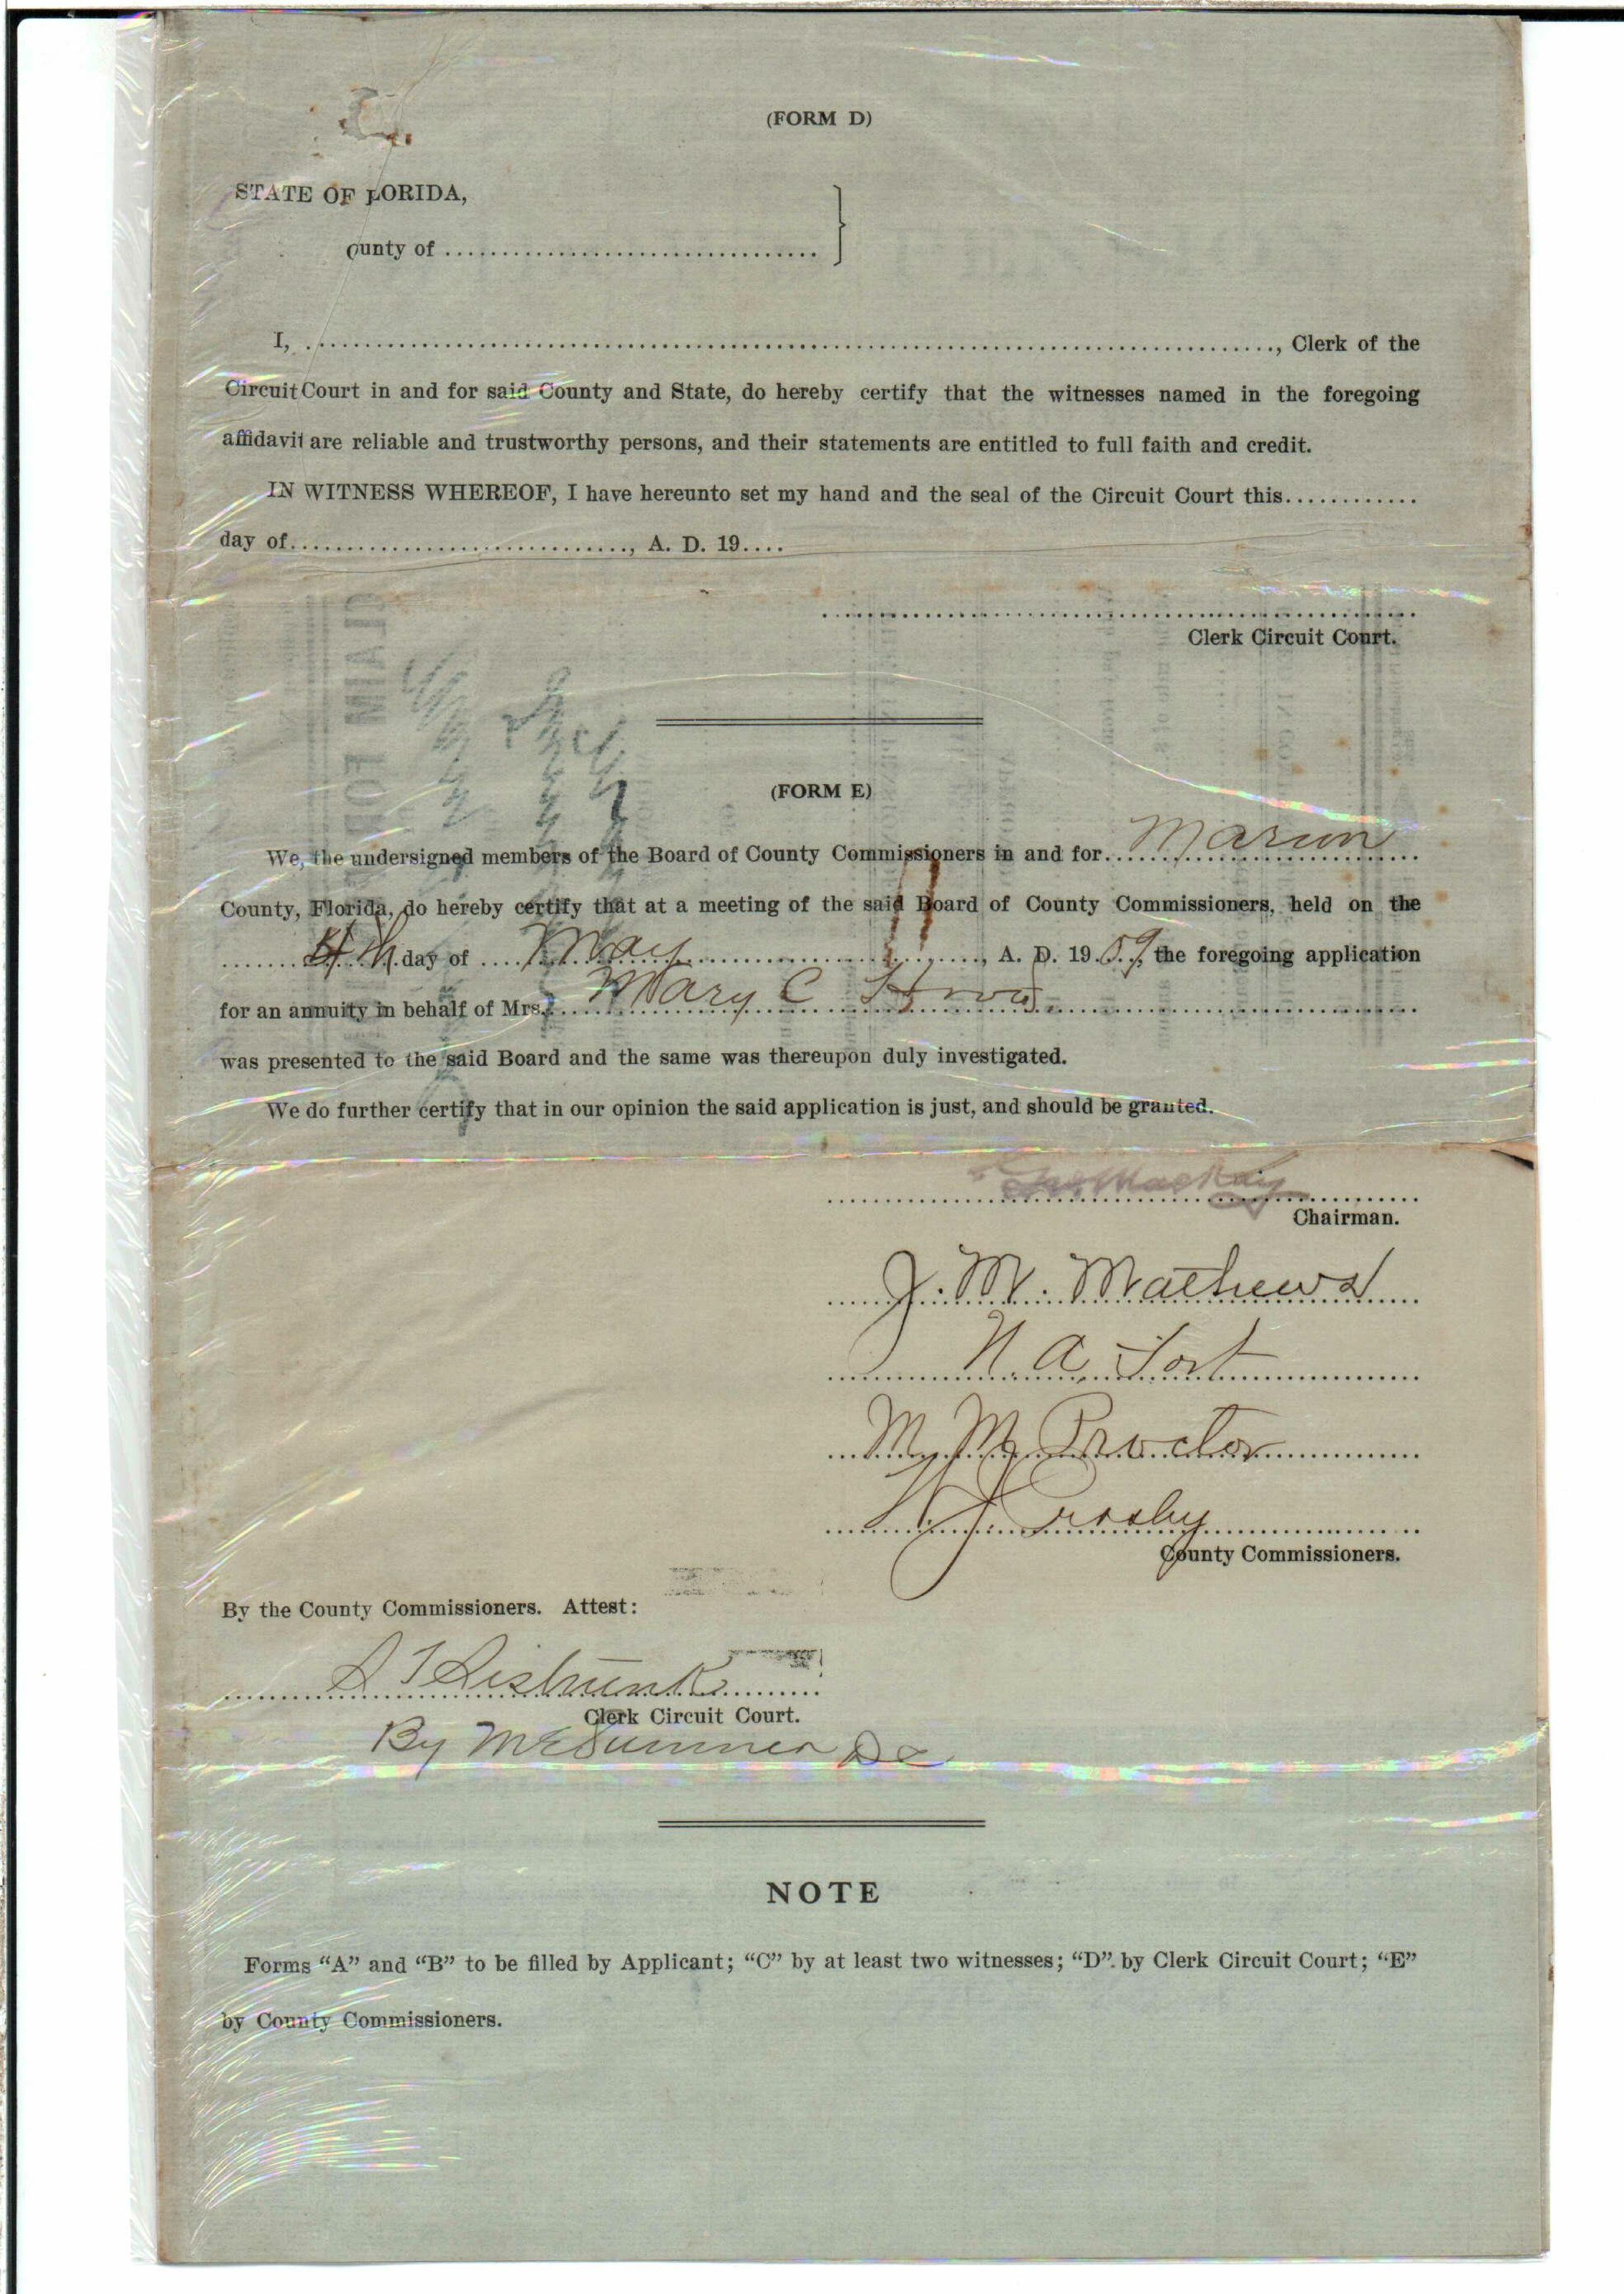 (FORM D)
STATE OF FLORIDA,
ounty of ................................
I, ................................, Clerk of the
Circuit Court in and for said County and State, do hereby certify that the witnesses named in the foregoing
affidavit are reliable and trustworthy persons, and their statements are entitled to full faith and credit.
IN WITNESS WHEREOF, I have hereunto set my hand and the seal of the Circuit Court this............
day of................................, A. D. 19....
Clerk Circuit Court.
(FORM E)
We, the undersigned members of the Board of County Commissioners in and for Marion
County, Florida, do hereby certify that at a meeting of the said Board of County Commissioners, held on the
4th day of May, A. D. 1909, the foregoing application
for an annuity in behalf of Mrs. Mary C
was presented to the said Board and the same was thereupon duly investigated.
We do further certify that in our opinion the said application is just, and should be granted.
Geo MacKay
Chairman.
J. M. Mathews
N. A. Fort
M. M. Proctor
W J Crosby
County Commissioners.
By the County Commissioners. Attest:
S T Sistrunk
Clerk Circuit Court.
By M E Sumner D C
NOTE
Forms “A” and “B” to be filled by Applicant; “C” by at least two witnesses; “D”. by Clerk Circuit Court; “E”
by County Commissioners.